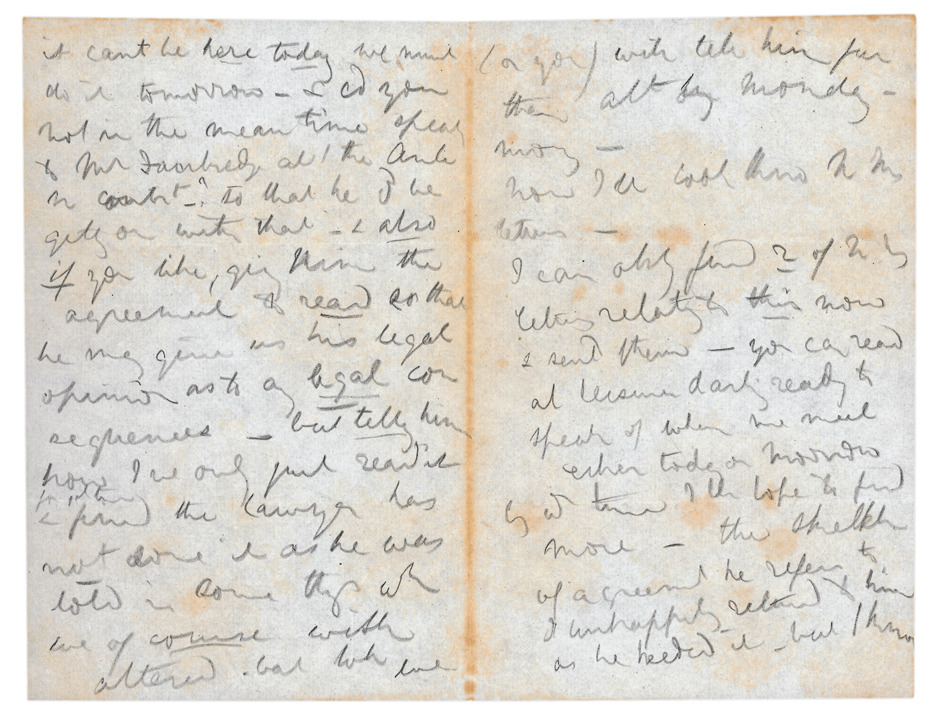 it cant be here today we must
do it tomorrow - & cd you
not in the mean time speak
to Mr at the
in ? so that he d be
getg on with that - & also
if you like, givg Him the
agreement to read so that
he may give us his legal
opinion as to any legal con
sequences - but tellg him
how I've only just read it
& find the Lawyer has
not done it as he was
told in some thgs wh
we of course wish
altered - but wh we
(or you) will tell him fur
ther abt by Monday -
morng -
now I'll look thro N his
letters -
I can only find 2 of N. 's
letters relatg to this now
& send them - you can read
at leisure & ready to
speak of when we meet
either today or Morrow
by wh time I shll hope to find
more - the sketch
of agreemt he refers to
I unhappily returnd to him
as he needed it - but I know